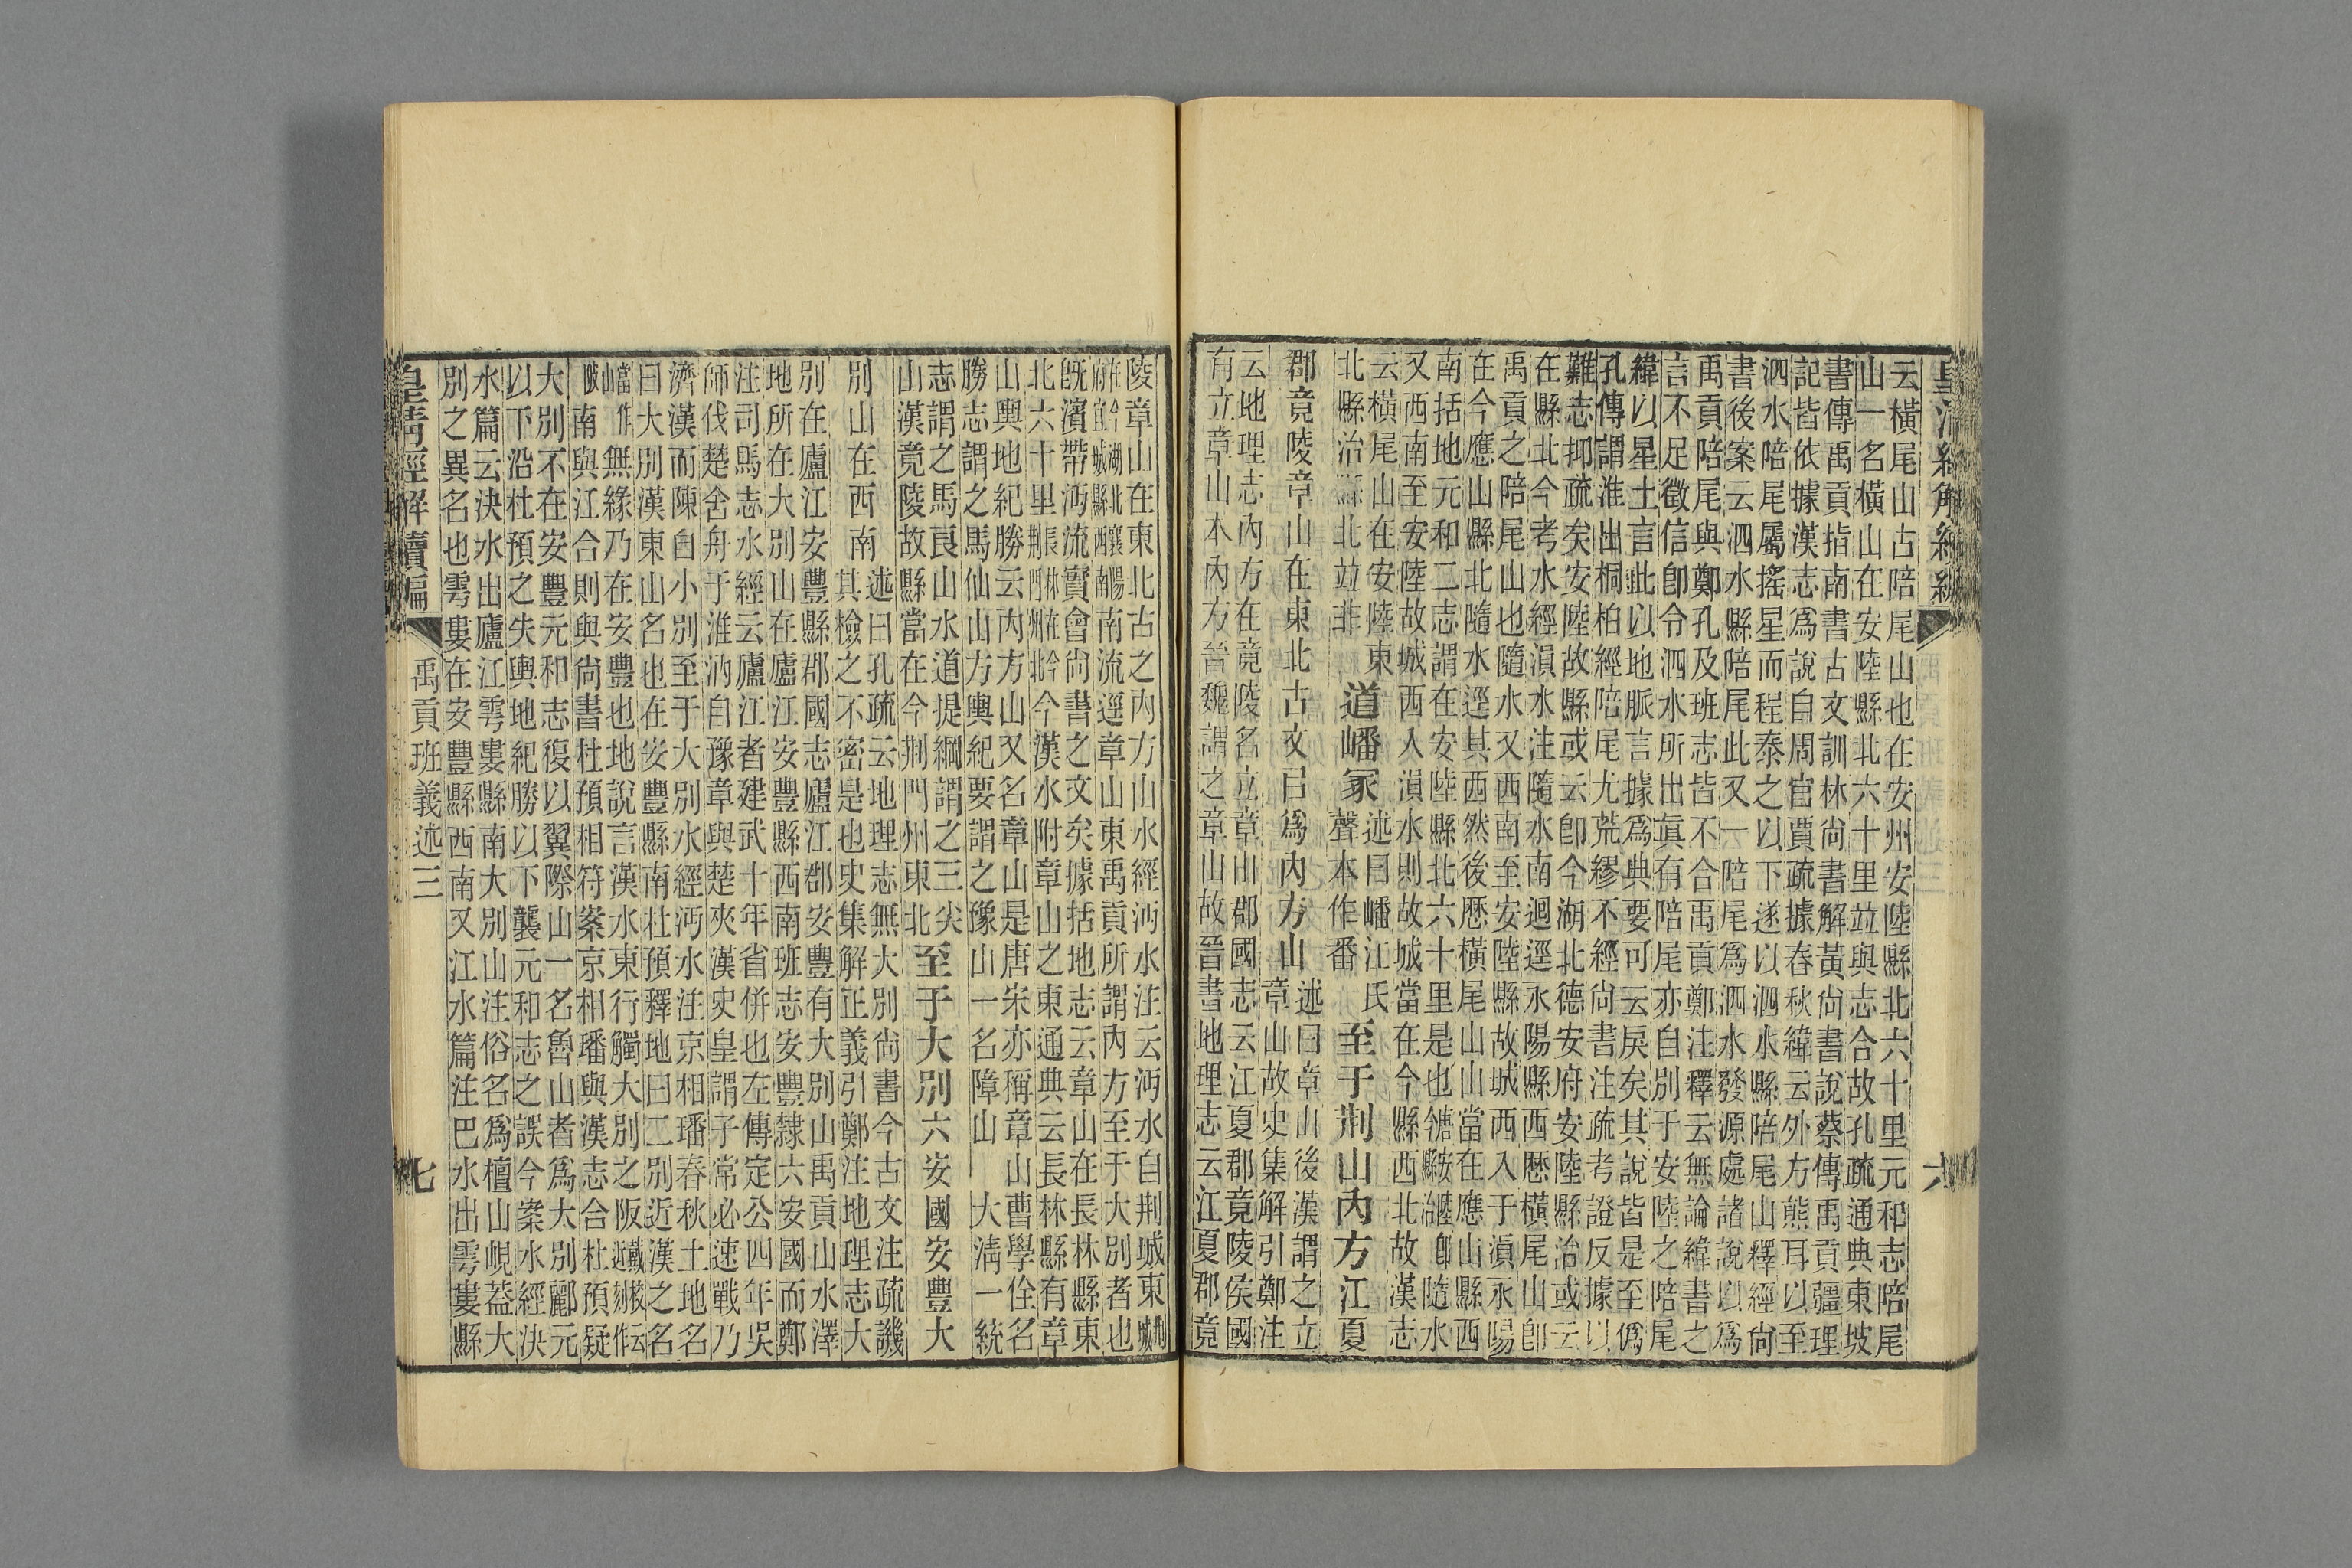 皇清經解續編
六
云橫尾山古陪尾山也在安州安陸縣北六十里元和志陪尾
山一名橫山在安陸縣北六十里竝與志合故孔疏通典東坡
書傳禹貢指南書古文訓林尙書解黃尙書說蔡傳禹貢疆理
記皆依據漢志爲說自周官賈疏據春秋緯云外方熊耳以至
泗水陪尾屬搖星而程泰之以下遂以泗水縣陪尾山釋經尙
書後案云泗水縣陪尾此又一陪尾爲泗水發源處諸說以爲
禹貢陪尾與鄭孔及班志皆不合禹貢鄭注釋云無論緯書之
言不足徵信卽令泗水所出眞有陪尾亦自別于安陸之陪尾
緯以星土言此以地脈言據爲典要可云戾矣其說皆是至僞
孔傳謂淮出桐柏經陪尾尤荒繆不經尙書注疏考證反據以
難志抑疏矣安陸故縣或云卽今湖北德安府安陸縣治或云
在縣北今考水經溳水注隨水南迴逕永陽縣西歷橫尾山卽
禹貢之陪尾山也隨水又西南至安陸縣故城西入于溳永陽
在今應山縣北隨水逕其西然後歷橫尾山山當在應山縣西
南括地元和二志謂在安陸縣北六十里是也雖安陸治卽隨水
又西南至安陸故城西入溳水則故城當在今縣西北故漢志
云橫尾山在安陸東
北縣治縣北竝非
道嶓冢
述曰嶓江氏
聲本作番
至于荆山內方江夏
郡竟陵章山在東北古文已爲內方山
述曰章山後漢謂之立
章山故史集解引鄭注
云地理志內方在竟陵名立章山郡國志云江夏郡竟陵侯國
有立章山本內方晉魏謂之章山故晉書地理志云江夏郡竟
陵章山在東北古之內方山水經沔水注云沔水自荆城東荆城
在今湖北襄陽
府宜城縣西南
南流逕章山東禹貢所謂內方至于大別者也
旣濱帶沔流實會尙書之文矣據括地志云章山在長林縣東
北六十里長林在今
荆門州北
今漢水附章山之東通典云長林縣有章
山輿地紀勝云內方山又名章山是唐宋亦稱章山曹學佺名
勝志謂之馬仙山方輿紀要謂之豫山一名障山
大淸一統
志謂之馬良山水道提綱謂之三尖
山漢竟陵故縣當在今荆門州東北
至于大別六安國安豐大
別山在西南
述曰孔疏云地理志無大別尙書今古文注疏譏
其檢之不密是也史集解正義引鄭注地理志大
別在廬江安豐縣郡國志廬江郡安豐有大別山禹貢山水澤
地所在大別山在廬江安豐縣西南班志安豐隸六安國而鄭
注司馬志水經云廬江者建武十年省併也左傳定公四年吳
師伐楚舍舟于淮汭自豫章與楚夾漢史皇謂子常必速戰乃
濟漢而陳自小別至于大別水經沔水注京相璠春秋土地名
曰大別漢東山名也在安豐縣南杜預釋地曰二別近漢之名
當作
無緣乃在安豐也地說言漢水東行觸大別之阪
南與江合則與尙書杜預相符案京相璠與漢志合杜預疑
大別不在安豐元和志復以翼際山一名魯山者爲大別酈元
以下沿杜預之失輿地紀勝以下襲元和志之誤今案水經決
水篇云決水出廬江雩婁縣南大別山注俗名爲檀山峴蓋大
別之異名也雩婁在安豐縣西南又江水篇注巴水出雩婁縣
皇淸經解續編
禹貢班義述三
七